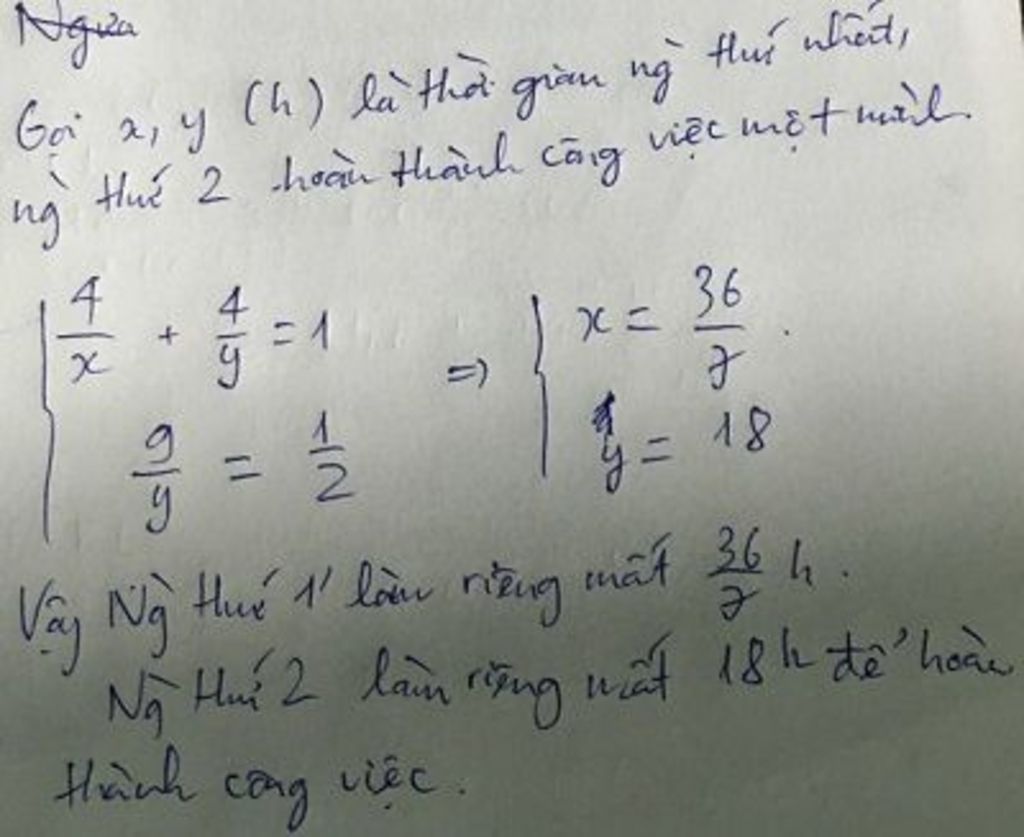 Ngưa
Gọi x, y (h) là thời gian ng̀ thứ nhất,
ng̀ thứ 2 hoàn thành công việc một mình.
4/x + 4/y = 1 => x = 36/7.
9/y = 1/2 y = 18
Vậy Ng̀ thứ 1 làm riêng mất 36/7 h.
Ng̀ thứ 2 làm riêng mất 18h để hoàn
thành công việc.